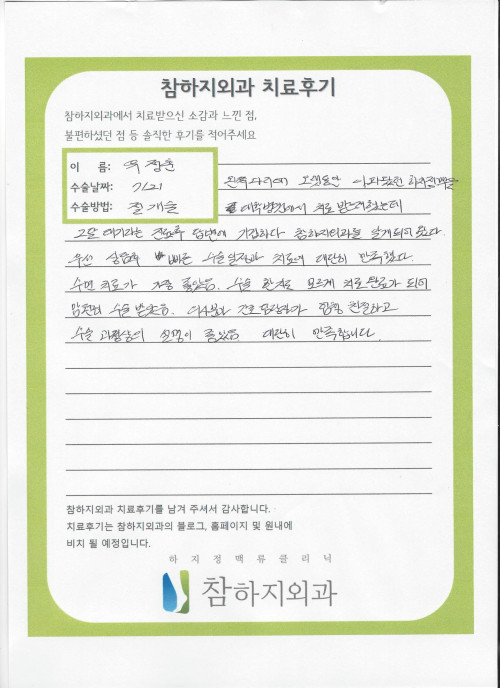 참하지외과 치료후기
참하지외과에서 치료받으신 소감과 느낀 점,
불편하셨던 점 등 솔직한 후기를 적어주세요
이 름:
수술날짜: 7/21
수술방법:
왼쪽 다리에 오랫동안 하지정맥을
대학병원에서 치료 받으려했는데
그달 대기라는 답변에 참하지외과를 알게되었다.
우선 상담후 빠른 수술일정과 치료에 대단히 만족했다.
수면 치료가 가장 좋았음. 수술 한지도 모르게 치료 완료가 되어
수술 받았음. 간호 친절하고
수술 과정상의 설명이 좋았음. 대단히 만족합니다.
참하지외과 치료후기를 남겨 주셔서 감사합니다.
치료후기는 참하지외과의 블로그, 홈페이지 및 원내에
비치 될 예정입니다.
하지정맥류클리닉
참하지외과